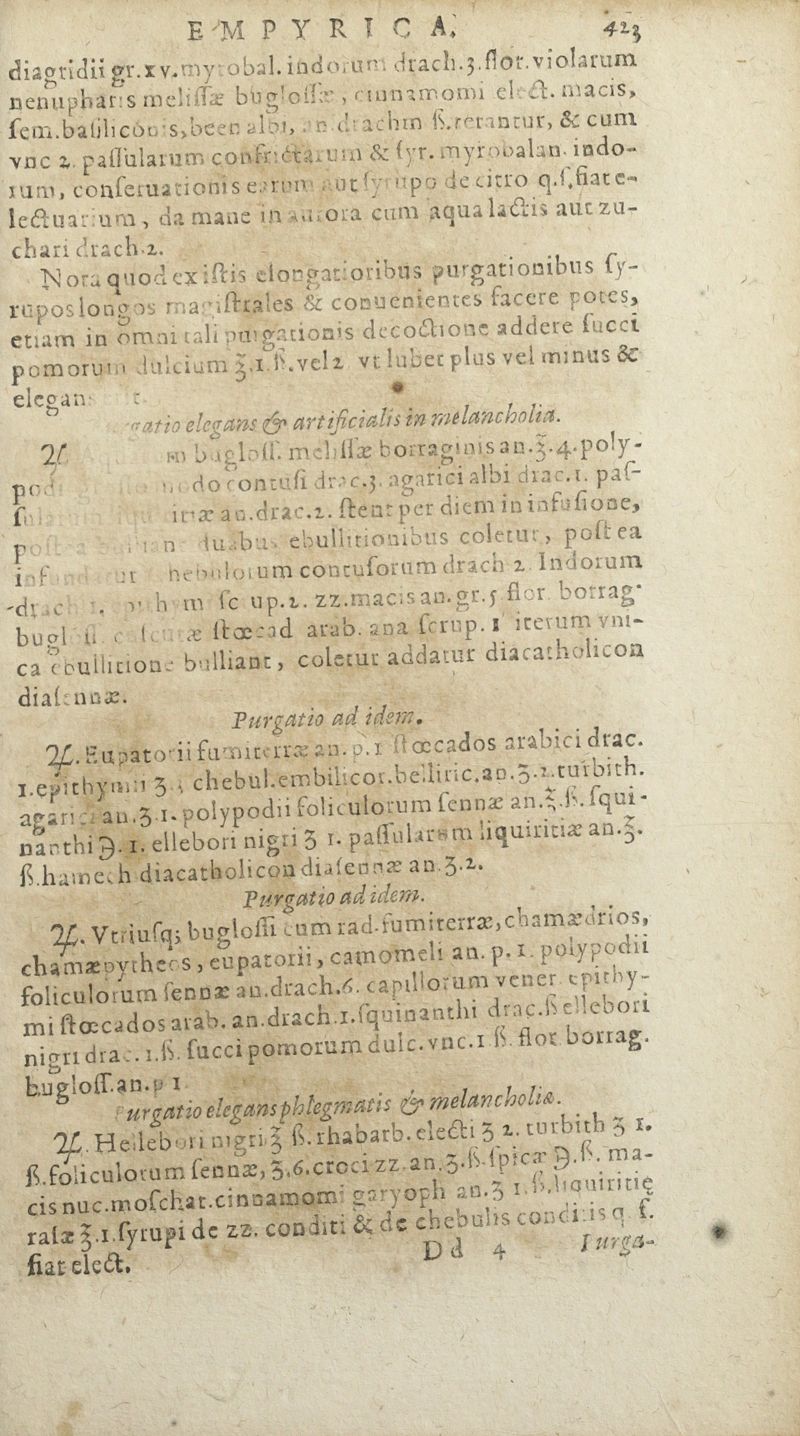 EMPYRICA. 423
diagridii gr.xv.myrobal.indorum drach.3.flor.violarum
nenupharis melissæ buglossæ, cinnamomi elect. macis,
sem.basiliconis,been albi, an.drachm ß.terantur, & cum
vnc 2. passularum confrictarum & syr. myrobalan. indo-
rum, conseruationis earum aut syrupo de citro q.s.fiat e-
lectuarium, da mane in aurora cum aqua lactis aut zu-
chari drach.2.
Nota quod ex istis elongatioribus purgationibus sy-
rupos longos magistrales & conuenientes facere potes,
etiam in omni tali purgationis decoctione addere succi
pomorum dulcium ℥.1.ß.vel 2 vt lubet plus vel minus &
elegan
gatio elegans & artificialis in melancholia.
♃ bugloss. melissæ borraginis an.℥.4.poly-
pod do contusi drac.3. agarici albi drac.1. pas-
su an.drac.2. stent per diem in infusione,
po duabus ebullitionibus coletur, postea
inf nebulorum contusorum drach 2 Indorum
drac scrup.1. zz.macis an.gr.5 flor. borrag.
bugl stœcad arab. ana scrup.1 iterum vni-
ca ebullitione bulliant, coletur addatur diacatholicon
diasennæ.
Purgatio ad idem.
♃. Eupatorii fumiterræ an.p.1 stœcados arabici drac.
1.epithymi ʒ chebul.embilicor.belliric.an.ʒ.2.turbith.
agarici an.ʒ 1. polypodii foliculorum sennæ an.℥.ß.squi-
nanthi ℈.1. ellebori nigri ʒ 1. passularum liquiritiæ an.ʒ.
ß.hamech diacatholicon diasennæ an.ʒ.2.
Purgatio ad idem.
♃. Vtriusq; buglossi cum rad.fumiterræ,chamædrios,
chamæpytheos, eupatorii, camomeli an. p.1. polypodii
foliculorum sennæ an.drach.6. capillorum vener. epithy-
mi stœcados arab. an.drach.1.squinanthi drac.ß ellebori
nigri drac.1.ß. succi pomorum dulc.vnc.1 ß. flor borrag.
bugloss.an.p 1
Purgatio elegans phlegmatis & melancholiæ.
♃. Hellebori nigri ʒ ß.rhabarb.electi ʒ 2. turbith ʒ 1.
ß.foliculorum sennæ, ʒ.6.croci zz.an.ʒ.ß.spicæ ℈.ß. ma-
cis nuc.moschat.cinnamomi garyoph an.ʒ 1.ß.liquiritiæ
rasæ ℥.1.syrupi de zz. conditi & de chebulis conditis q s.
fiat elect.
Dd 4 Purga-